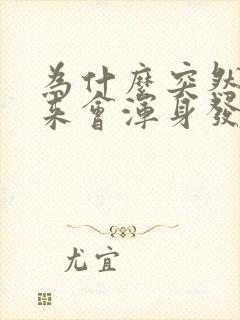 為什麼突然
來會渾身發
尤宜